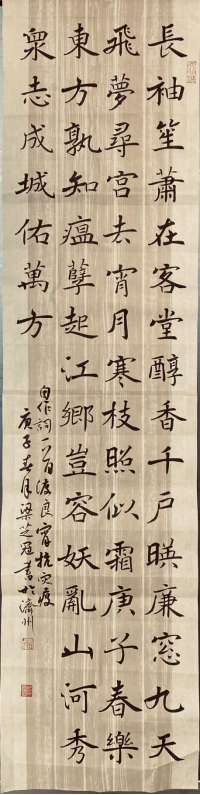 長袖笙簫在客堂醇香千戶暎廉窓九天
飛夢尋宮去宵月寒枝照似霜庚子春樂
東方孰知瘟孽起江鄉豈容妖亂山河秀
衆志成城佑萬方
自作詞一首渡良宵抗灾疫
庚子春月梁芝冠書於濟州